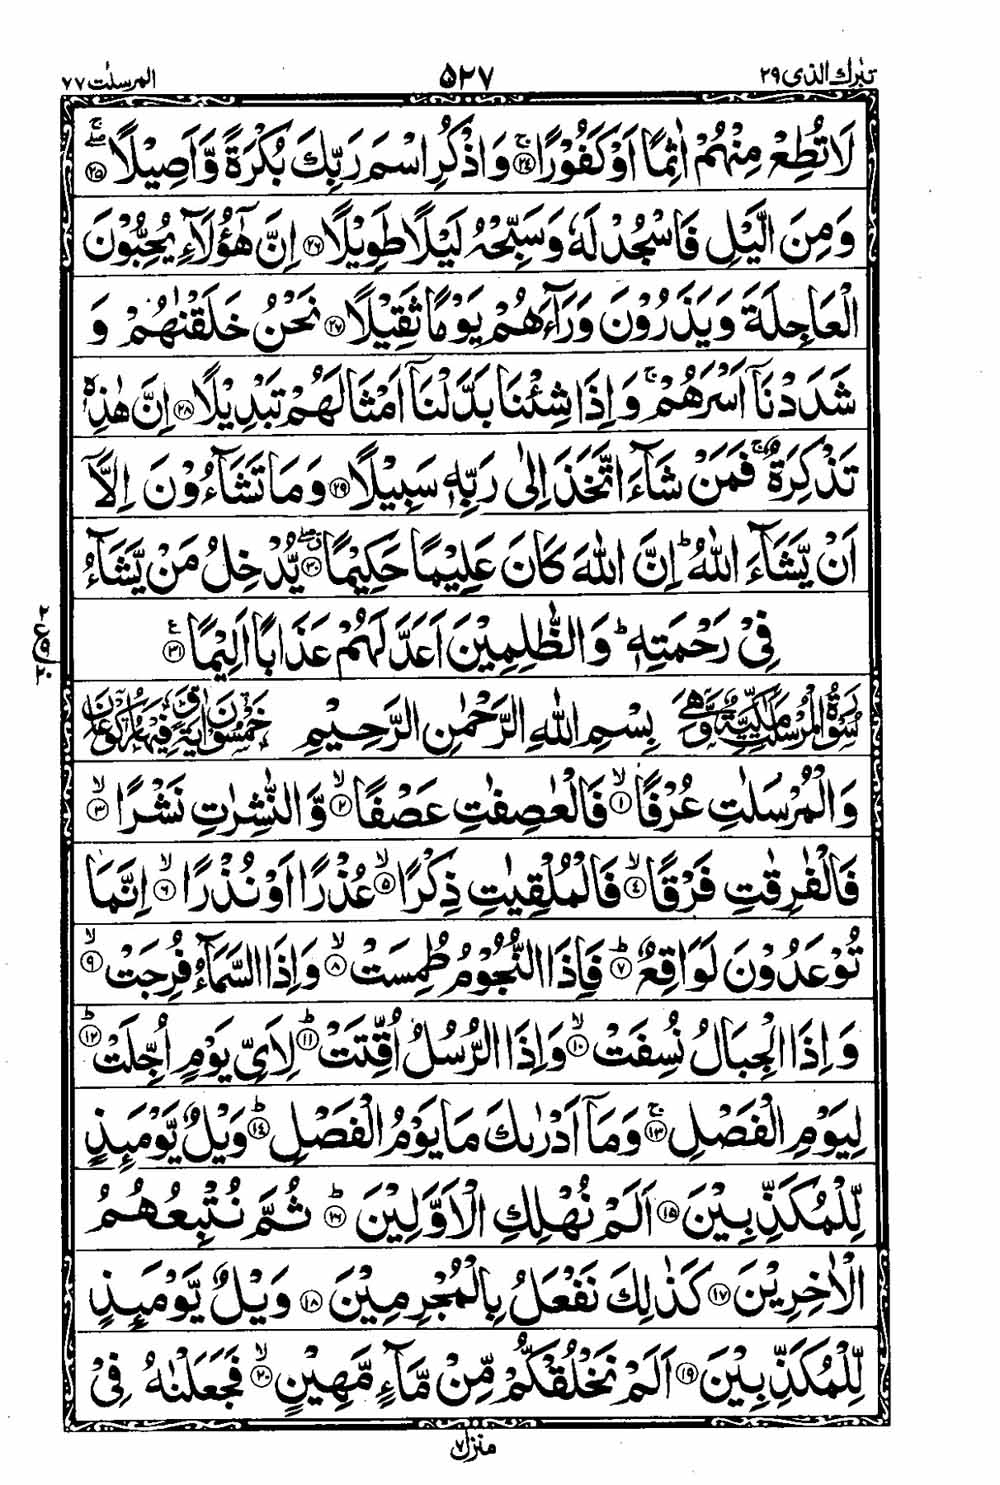 تبٰرك الذی ٢٩
٥٢٧
المرسلٰت ٧٧
لَا تُطِعْ مِنْهُمْ اٰثِمًا اَوْ كَفُوْرًا ۚ‏﴿۲۴﴾ وَ اذْكُرِ اسْمَ رَبِّكَ بُكْرَةً وَّ اَصِيْلًا ۖۚ‏﴿۲۵﴾
وَ مِنَ الَّيْلِ فَاسْجُدْ لَهٗ وَ سَبِّحْهُ لَيْلًا طَوِيْلًا ﴿۲۶﴾ اِنَّ هٰٓؤُلَآءِ يُحِبُّوْنَ
الْعَاجِلَةَ وَ يَذَرُوْنَ وَرَآءَهُمْ يَوْمًا ثَقِيْلًا ﴿۲۷﴾ نَحْنُ خَلَقْنٰهُمْ وَ
شَدَدْنَاۤ اَسْرَهُمْ ۚ وَ اِذَا شِئْنَا بَدَّلْنَاۤ اَمْثَالَهُمْ تَبْدِيْلًا ﴿۲۸﴾ اِنَّ هٰذِهٖ
تَذْكِرَةٌ ۚ فَمَنْ شَآءَ اتَّخَذَ اِلٰى رَبِّهٖ سَبِيْلًا ﴿۲۹﴾ وَ مَا تَشَآءُوْنَ اِلَّاۤ
اَنْ يَّشَآءَ اللّٰهُ ؕ اِنَّ اللّٰهَ كَانَ عَلِيْمًا حَكِيْمًا ۖۗ ﴿۳۰﴾ يُّدْخِلُ مَنْ يَّشَآءُ
فِيْ رَحْمَتِهٖ ؕ وَ الظّٰلِمِيْنَ اَعَدَّ لَهُمْ عَذَابًا اَلِيْمًا ﴿۳۱﴾ ع
سُوْرَةُ الْمُرْسَلٰتِ مَكِّيَّةٌ وَّهِيَ بِسْمِ اللّٰهِ الرَّحْمٰنِ الرَّحِيْمِ خَمْسُوْنَ اٰيَةً وَّفِيْهَا رُكُوْعَانِ
وَ الْمُرْسَلٰتِ عُرْفًا ۙ﴿۱﴾ فَالْعٰصِفٰتِ عَصْفًا ۙ﴿۲﴾ وَّ النّٰشِرٰتِ نَشْرًا ۙ﴿۳﴾
فَالْفٰرِقٰتِ فَرْقًا ۙ﴿۴﴾ فَالْمُلْقِيٰتِ ذِكْرًا ۙ﴿۵﴾ عُذْرًا اَوْ نُذْرًا ۙ﴿۶﴾ اِنَّمَا
تُوْعَدُوْنَ لَوَاقِعٌ ؕ﴿۷﴾ فَاِذَا النُّجُوْمُ طُمِسَتْ ۙ﴿۸﴾ وَ اِذَا السَّمَآءُ فُرِجَتْ ۙ﴿۹﴾
وَ اِذَا الْجِبَالُ نُسِفَتْ ۙ﴿۱۰﴾ وَ اِذَا الرُّسُلُ اُقِّتَتْ ؕ﴿۱۱﴾ لِاَيِّ يَوْمٍ اُجِّلَتْ ؕ﴿۱۲﴾
لِيَوْمِ الْفَصْلِ ۚ﴿۱۳﴾ وَ مَاۤ اَدْرٰىكَ مَا يَوْمُ الْفَصْلِ ؕ﴿۱۴﴾ وَيْلٌ يَّوْمَئِذٍ
لِّلْمُكَذِّبِيْنَ ﴿۱۵﴾ اَلَمْ نُهْلِكِ الْاَوَّلِيْنَ ؕ﴿۱۶﴾ ثُمَّ نُتْبِعُهُمُ
الْاٰخِرِيْنَ ﴿۱۷﴾ كَذٰلِكَ نَفْعَلُ بِالْمُجْرِمِيْنَ ﴿۱۸﴾ وَيْلٌ يَّوْمَئِذٍ
لِّلْمُكَذِّبِيْنَ ﴿۱۹﴾ اَلَمْ نَخْلُقْكُّمْ مِّنْ مَّآءٍ مَّهِيْنٍ ۙ﴿۲۰﴾ فَجَعَلْنٰهُ فِيْ
منزل ٧